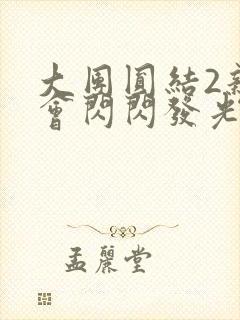 大團圓結2新
會閃閃發光
孟麗堂